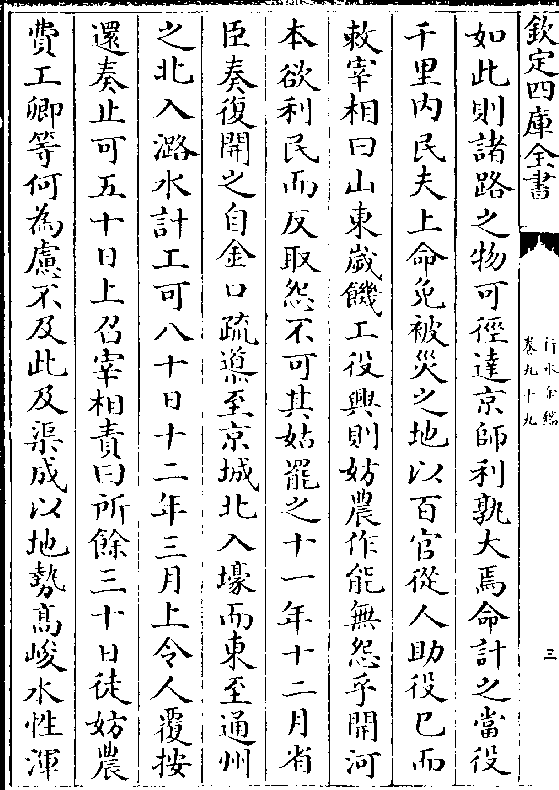 欽定四庫全書
行水金鑑
卷九十九
三
如此則諸路之物可徑達京師利孰大焉命計之當役
千里内民夫上命免被災之地以百官從人助役已而
敕宰相曰山東嵗饑工役興則妨農作能無怨乎開河
本欲利民而反取怨不可其姑罷之十一年十二月省
臣奏復開之自金口疏導至京城北入壕而東至通州
之北入潞水計工可八十日十二年三月上令人覆按
還奏止可五十日上召宰相責曰所餘三十日徒妨農
費工卿等何為慮不及此及渠成以地勢髙峻水性渾